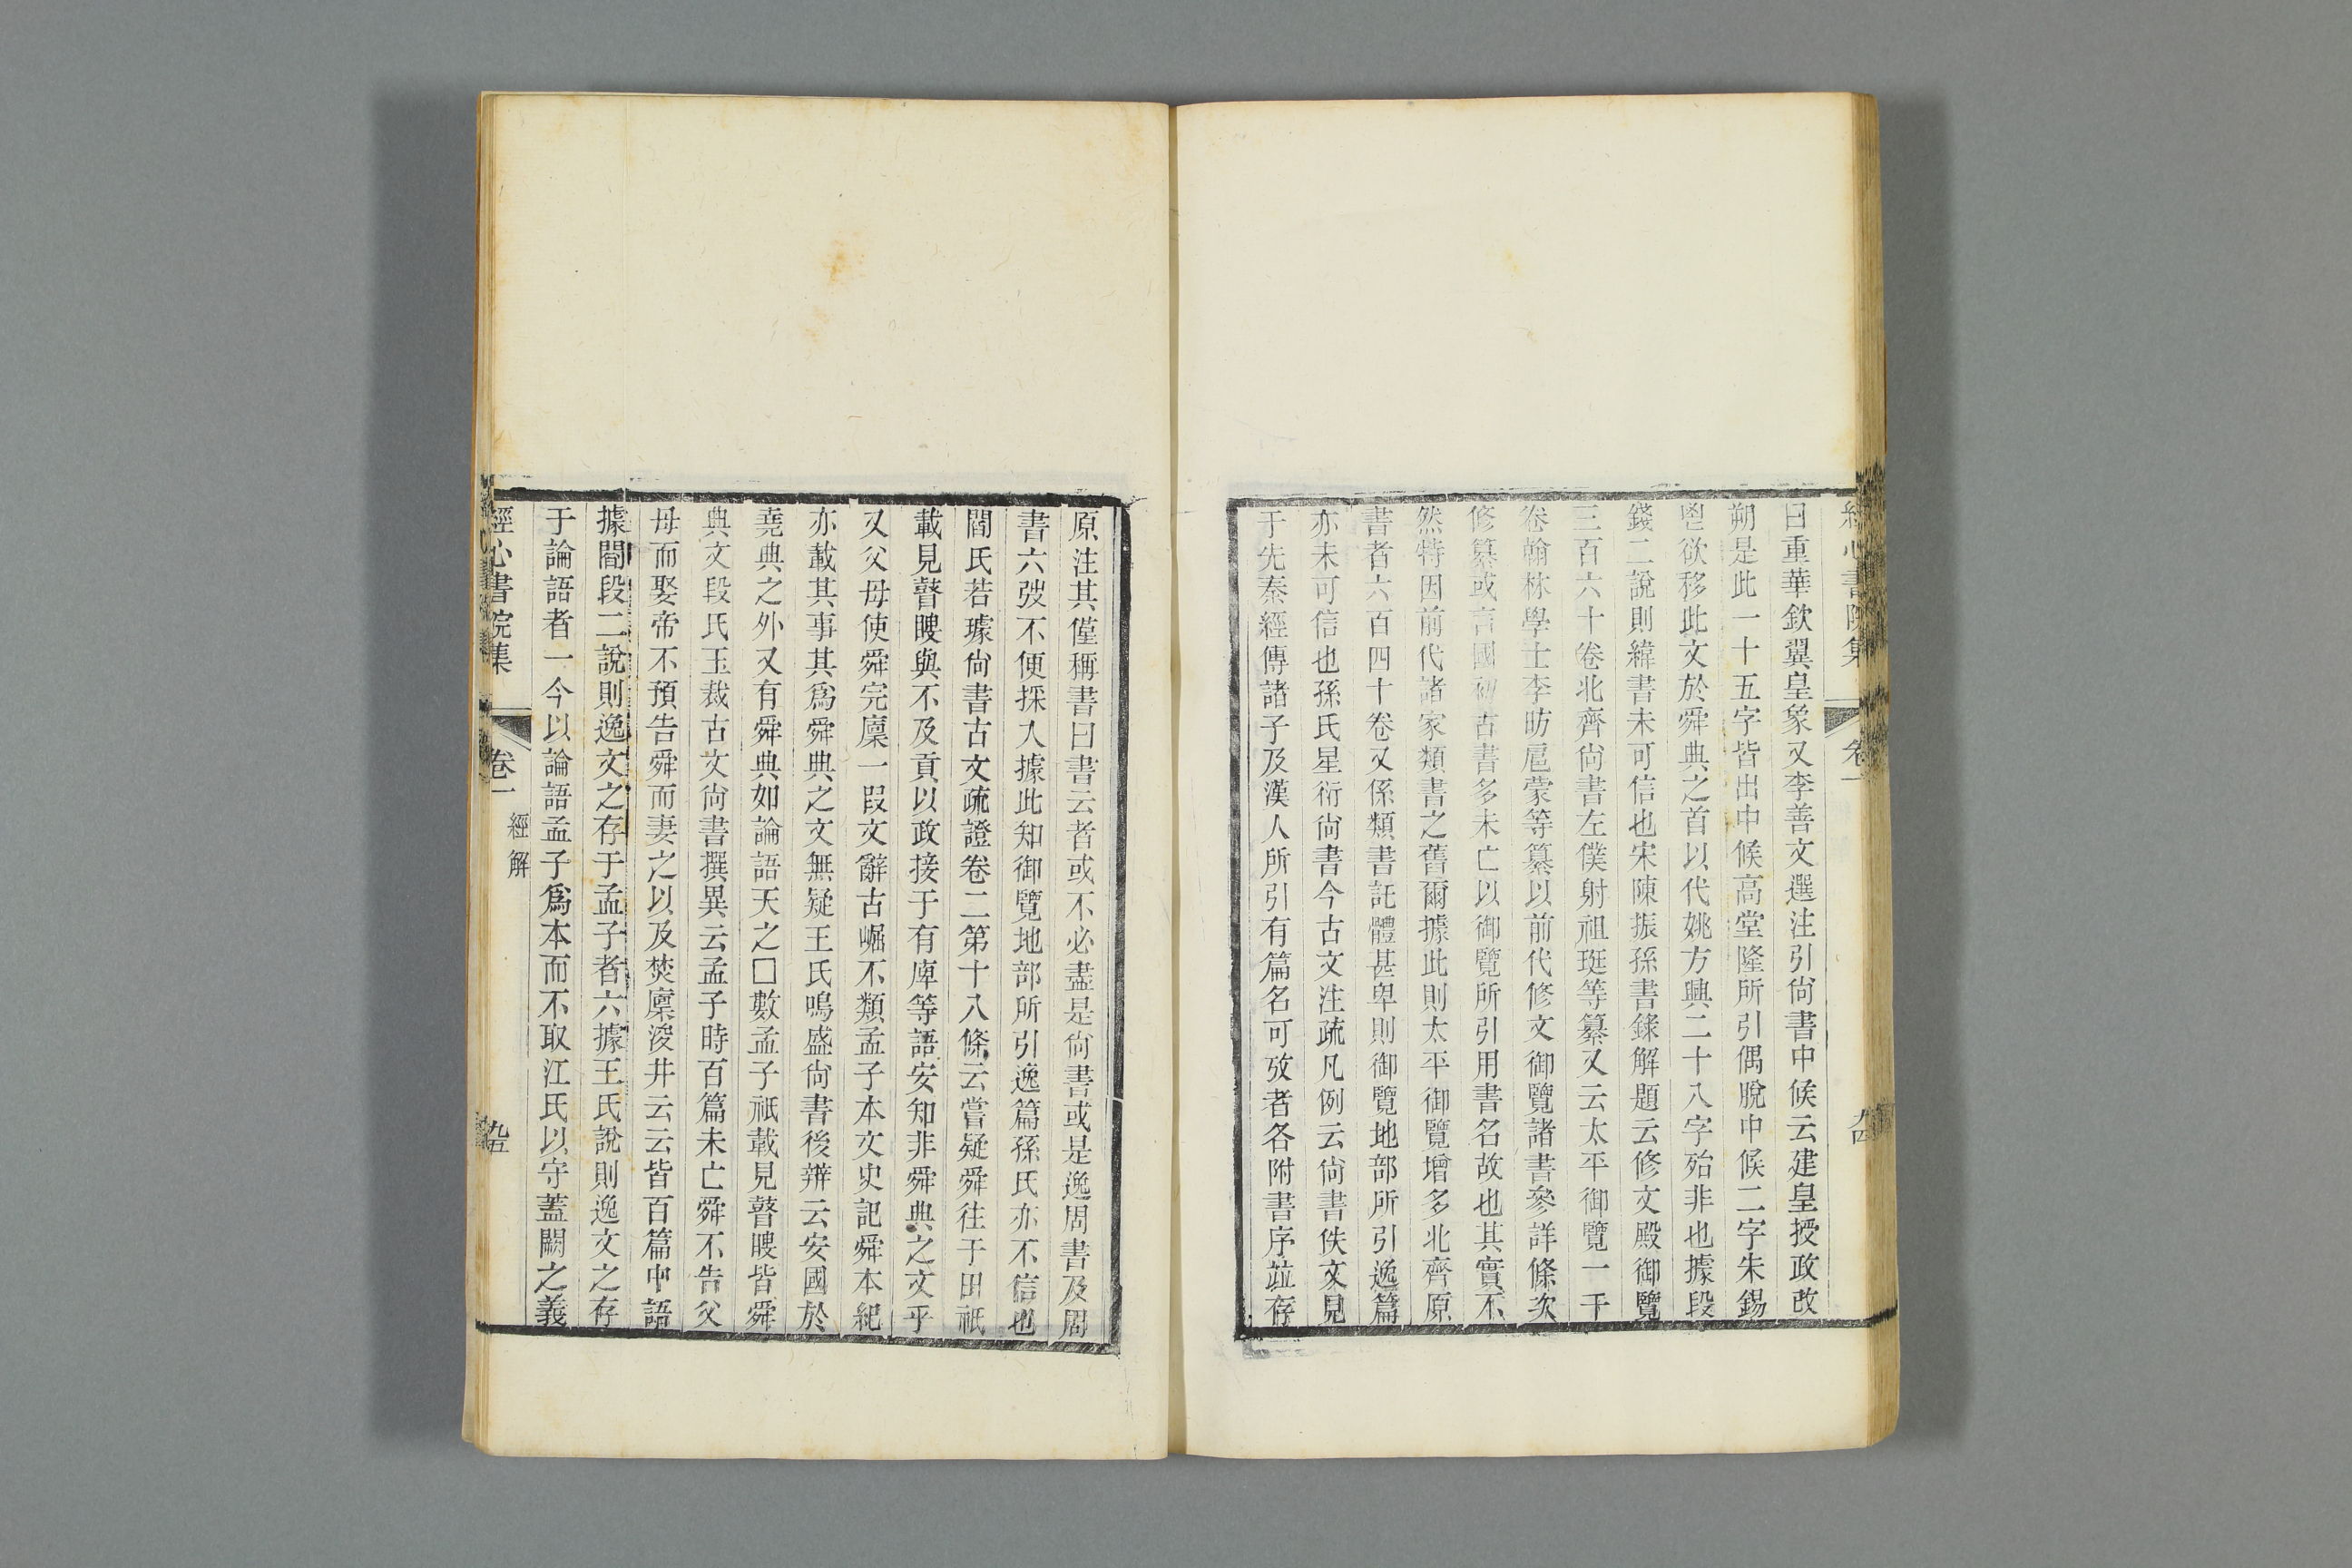 經心書院集 卷一 九四
曰重華欽翼皇象又李善文選注引尙書中候云建皇授政改
朔是此一十五字皆出中候高堂隆所引偶脫中候二字朱錫
鬯欲移此文於舜典之首以代姚方興二十八字殆非也據段
錢二說則緯書未可信也宋陳振孫書錄解題云修文殿御覽
三百六十卷北齊尙書左僕射祖珽等纂又云太平御覽一千
卷翰林學士李昉扈蒙等纂以前代修文御覽諸書參詳條次
修纂或言國初古書多未亡以御覽所引用書名故也其實不
然特因前代諸家類書之舊爾據此則太平御覽增多北齊原
書者六百四十卷又係類書託體甚卑則御覽地部所引逸篇
亦未可信也孫氏星衍尙書今古文注疏凡例云尙書佚文見
于先秦經傳諸子及漢人所引有篇名可攷者各附書序竝存
原注其僅稱書曰書云者或不必盡是尙書或是逸周書及周
書六弢不便採入據此知御覽地部所引逸篇孫氏亦不信也
閻氏若璩尙書古文疏證卷二第十八條云嘗疑舜往于田祇
載見瞽瞍與不及貢以政接于有庳等語安知非舜典之文乎
又父母使舜完廩一段文辭古崛不類孟子本文史記舜本紀
亦載其事其爲舜典之文無疑王氏鳴盛尙書後辨云安國於
堯典之外又有舜典如論語天之□數孟子祇載見瞽瞍皆舜
典文段氏玉裁古文尙書撰異云孟子時百篇未亡舜不告父
母而娶帝不預告舜而妻之以及焚廩浚井云云皆百篇中語
據閻段二說則逸文之存于孟子者六據王氏說則逸文之存
于論語者一今以論語孟子爲本而不取江氏以守蓋闕之義
經心書院集 卷一 經解 九五